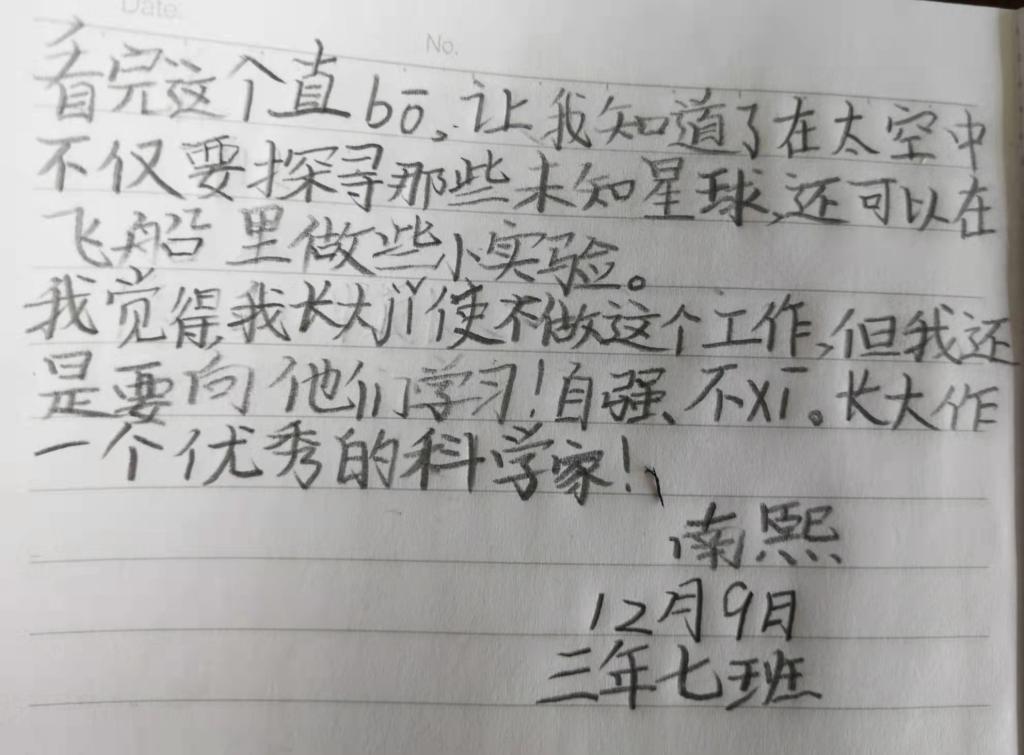 Date:
No.
看完这个直bō,让我知道了在太空中
不仅要探寻那些未知星球,还可以在
飞船里做些小实验。
我觉得,我长大jí使不做这个工作,但我还
是要向他们学习!自强、不xī。长大作
一个优秀的科学家!
南熙
12月9日
三年七班